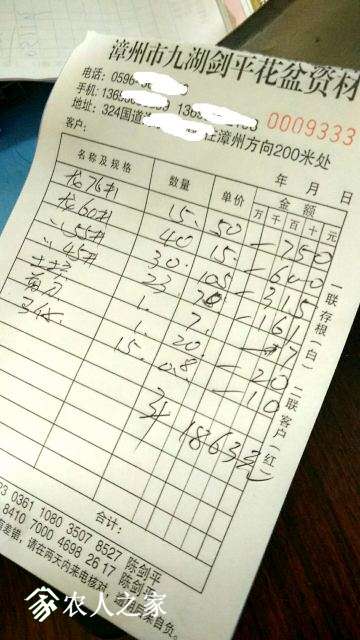 漳州市九湖剑平花盆资材
电话：0596
手机：13
地址：324国道 往漳州方向200米处
0009333
客户：
年 月 日
名称及规格 数量 单价 金额
万 千 百 十 元
龙76# 15. 50 750
龙60# 40 15. 600
55# 30. 105 315
45# 23 7 161
1. 7. 7
剪刀 1. 20. 20
15. 0.8. 10
1863元
一联存根（白）
二联客户（红）
合计：
23 0361 1080 3507 8527 陈剑平
8410 7000 4698 2617 陈剑
有差错，请在两天内来电核对 后果自负。
农人之家